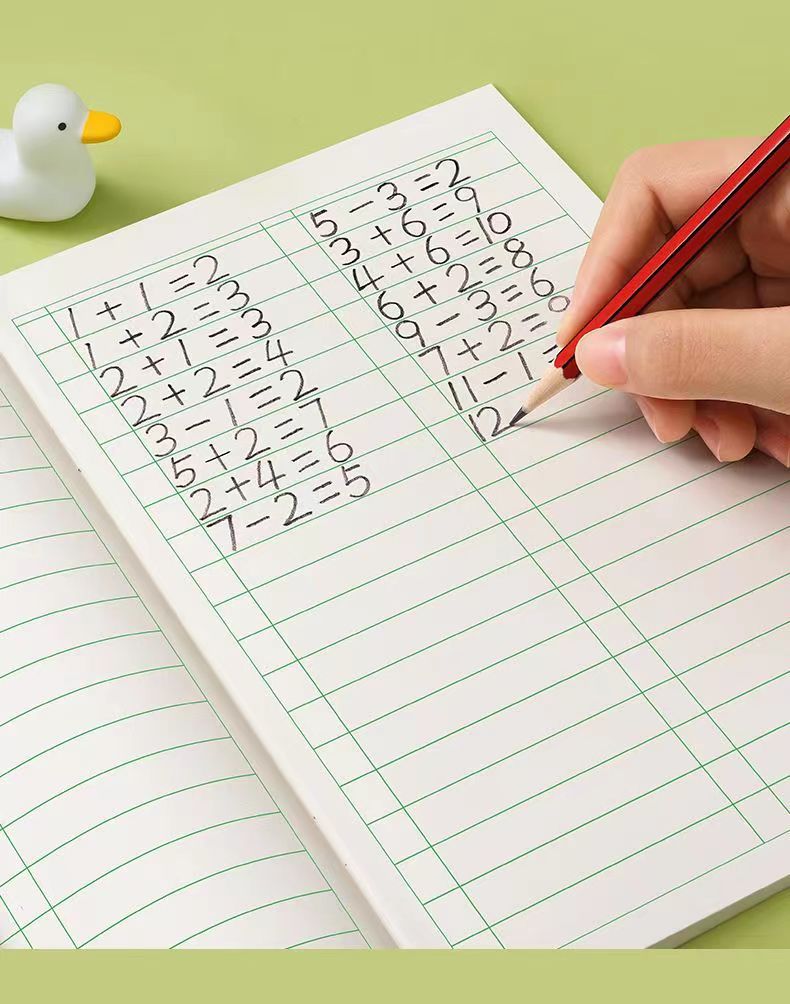 1+1=2
1+2=3
2+1=3
2+2=4
3-1=2
5+2=7
2+4=6
7-2=5
5-3=2
3+6=9
4+6=10
6+2=8
9-3=6
7+2=
11-1=
12